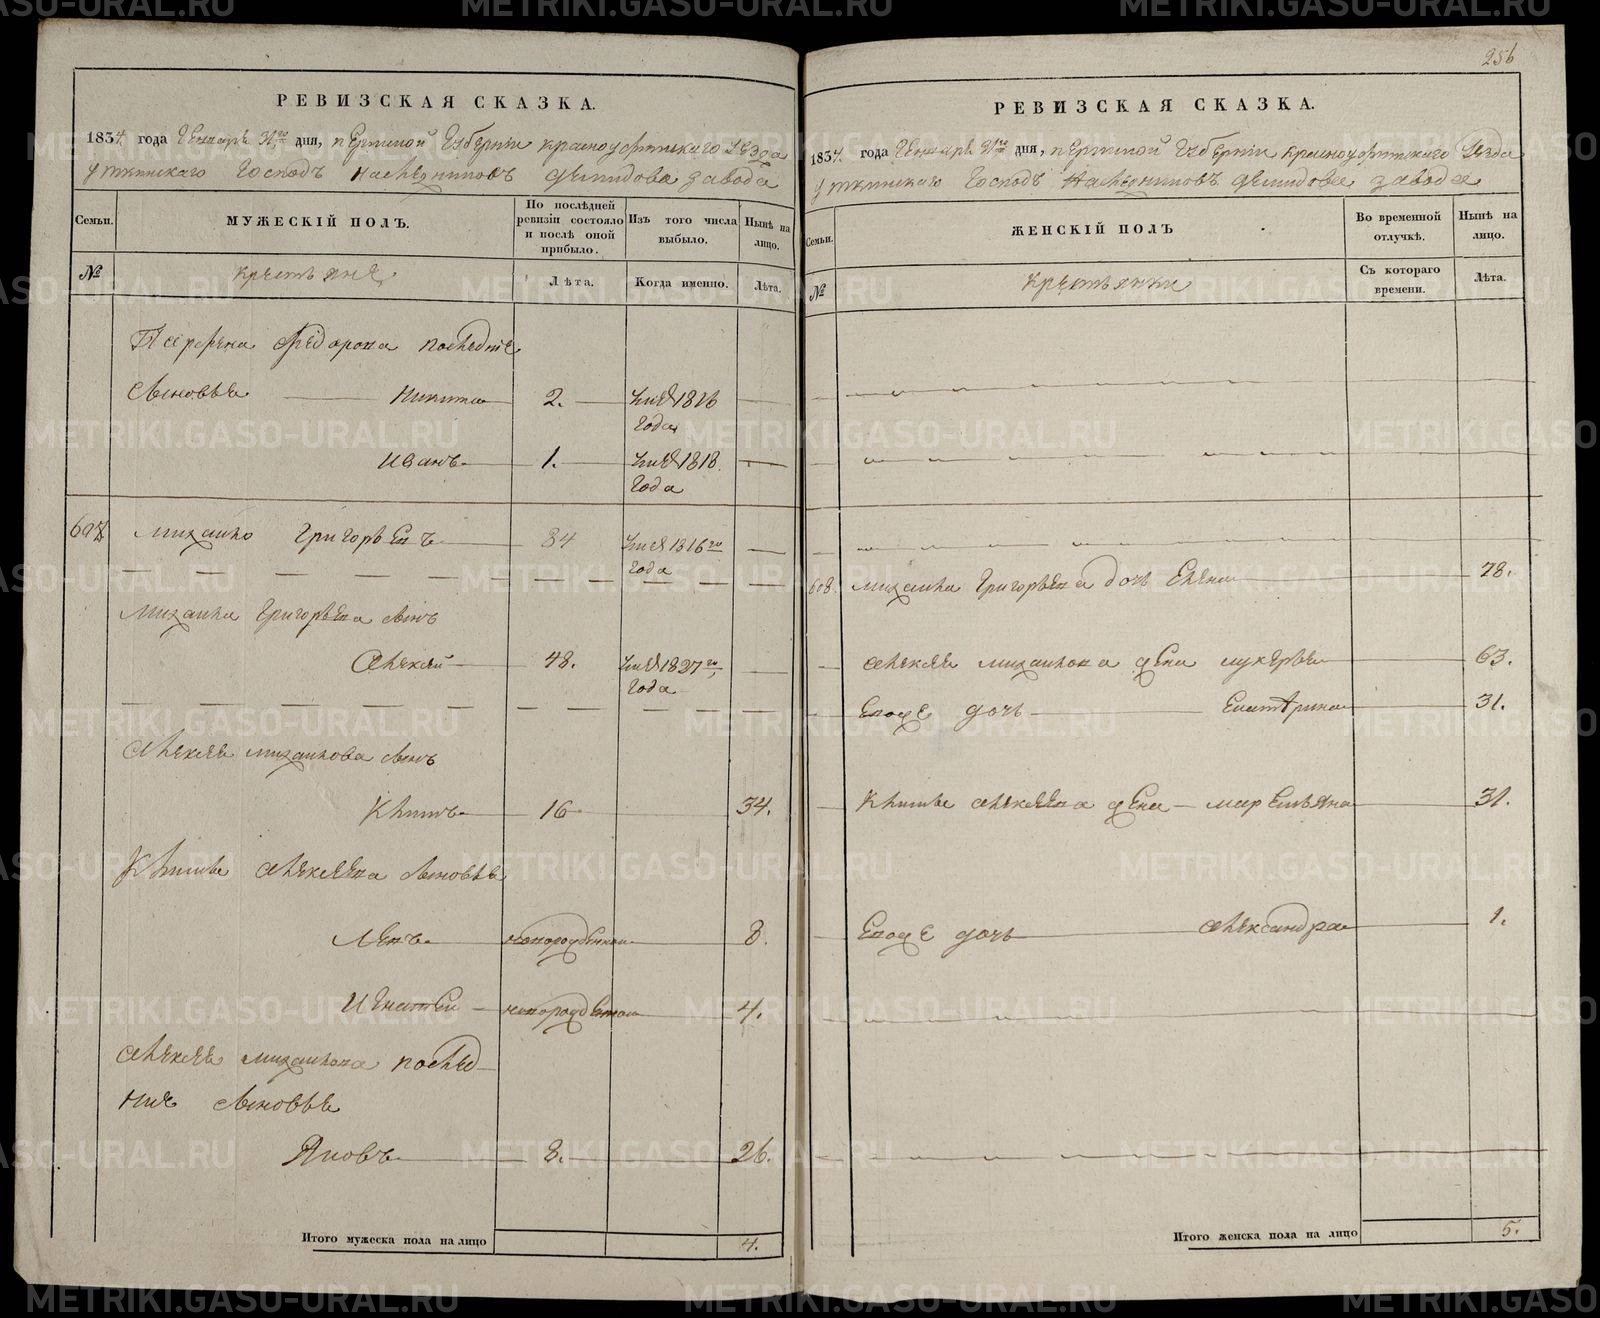 РЕВИЗСКАЯ СКАЗКА.
1834. года Генваря дня, Пермской Губернии Красноуфимского Уезда
Уткинского Господъ Наследниковъ Демидова завода
Семьи.
МУЖЕСКІЙ ПОЛЪ.
По послѣдней ревизіи состояло и послѣ оной прибыло.
Изъ того числа выбыло.
Нынѣ на лицо.
№
Крестьяне
Лѣта.
Когда именно.
Лѣта.
Парфена Федорова последние
Сыновье Никита 2. 1816
года
Иванъ 1. 1818.
года
607 Михайло Григорьевъ 84 1816го
года
Михайла Григорьева сынъ
Алексей 48. 1827го
года
Алексея Михайлова сынъ
Климъ 16 34.
Клима Алексеева сыновье
Левъ новорожденной 8.
Игнатей новорожденной 4.
Алексея Михайлова послед-
ние сыновье
Яковъ 8. 26.
Итого мужеска пола на лицо 4.
256
РЕВИЗСКАЯ СКАЗКА.
1834. года Генваря дня, Пермской Губернии Красноуфимского Уезда
Уткинского Господъ Наследниковъ Демидова завода
Семьи.
ЖЕНСКІЙ ПОЛЪ
Во временной отлучкѣ.
Нынѣ на лицо.
№
Крестьянки
Съ котораго времени.
Лѣта.
608. Михайла Григорьева дочь Елена 78.
Алексея Михайлова жена Лукерья 63.
Евоже дочь Екатерина 31.
Клима Алексеева жена Маремьяна 31.
Евоже дочь Александра 1.
Итого женска пола на лицо 5.
METRIKI.GASO-URAL.RU